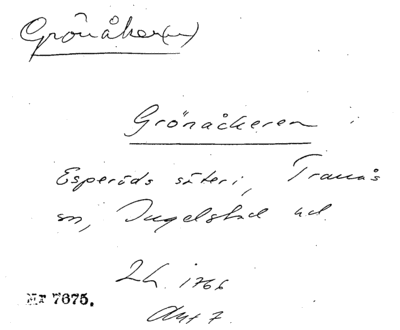 Grönåker(n)
Grönåckeren i
Esperöds säteri, Tranås
sn, Ingelstad hd.
Lh. 1766
Nr 7675. Akt 7.